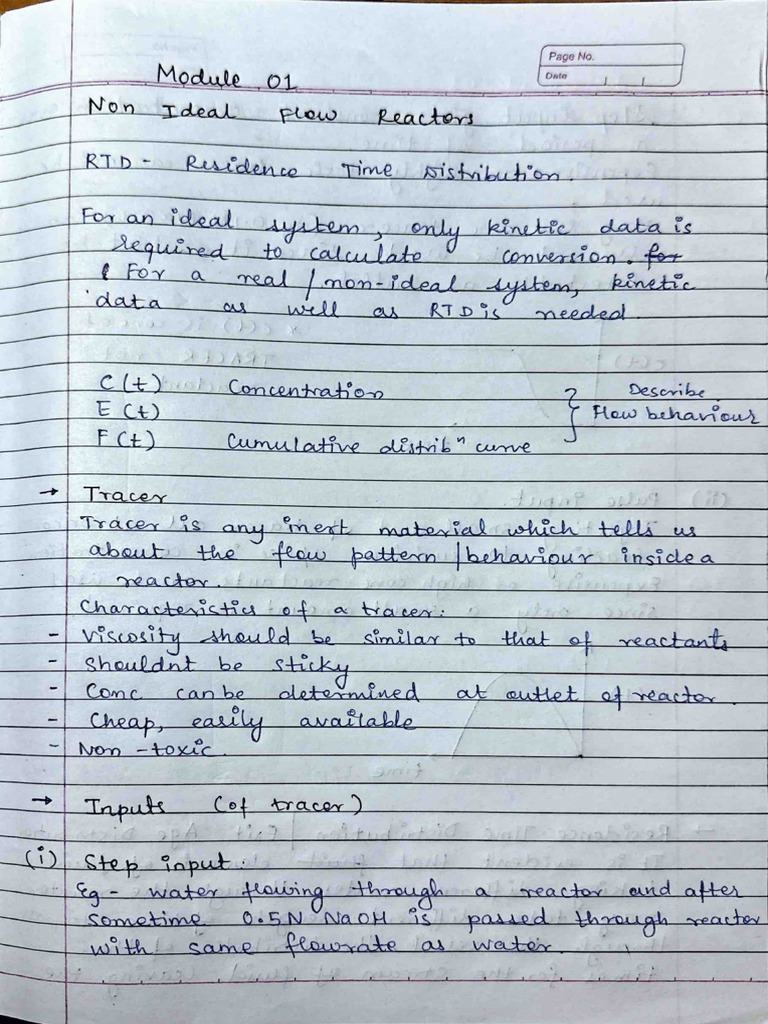 Page No.
Date
Module 01
Non Ideal Flow Reactors
RTD - Residence Time Distribution.
For an ideal system, only kinetic data is
required to calculate conversion. for
For a real / non-ideal system, kinetic
data as well as RTD is needed.
C(t) Concentration
E(t)
F(t) Cumulative distribⁿ curve
} Describe
Flow behaviour
→ Tracer
Tracer is any inert material which tells us
about the flow pattern / behaviour inside a
reactor.
Characteristics of a tracer:
- Viscosity should be similar to that of reactants
- Shouldnt be sticky
- Conc can be determined at outlet of reactor.
- Cheap, easily available
- Non-toxic.
→ Inputs (of tracer)
(i) Step input.
Eg- water flowing through a reactor and after
sometime 0.5N NaOH is passed through reactor
with same flowrate as water.